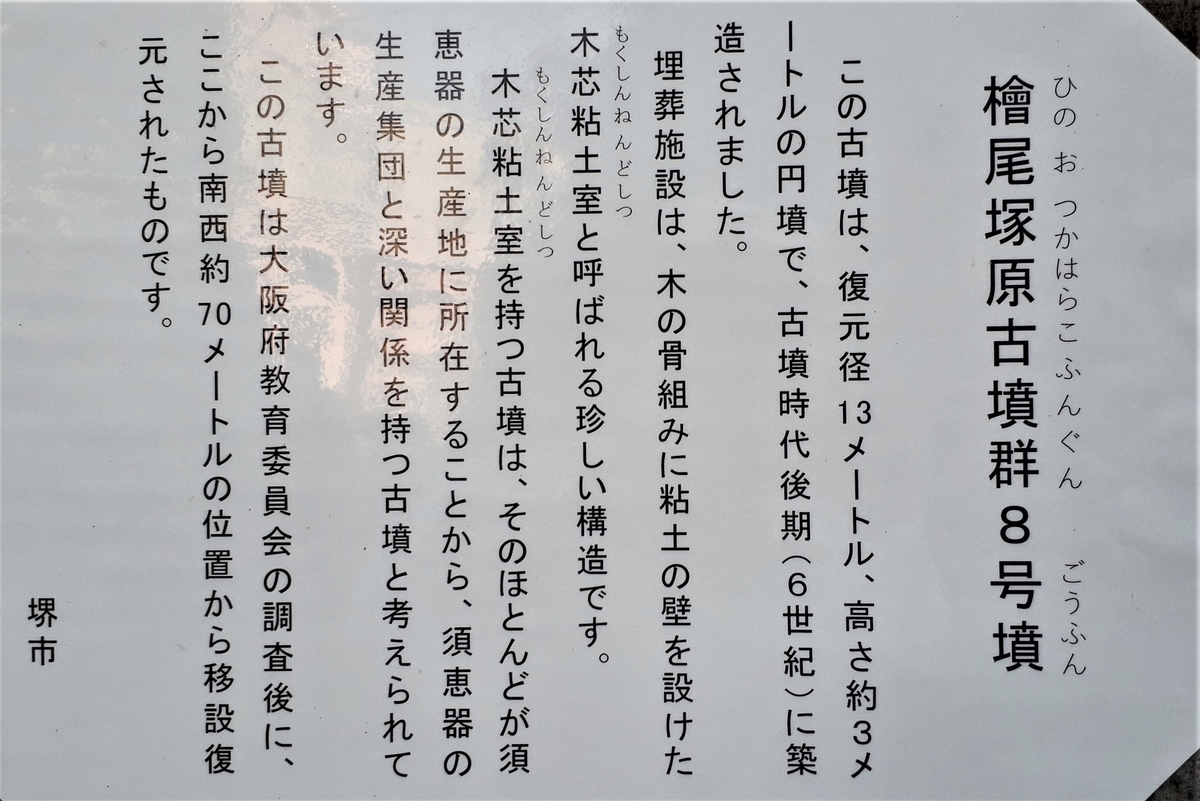 ひのおつかはらこふんぐん ごうふん
檜尾塚原古墳群８号墳
この古墳は、復元径13メートル、高さ約３メ
ートルの円墳で、古墳時代後期（６世紀）に築
造されました。
埋葬施設は、木の骨組みに粘土の壁を設けた
もくしんねんどしつ
木芯粘土室と呼ばれる珍しい構造です。
もくしんねんどしつ
木芯粘土室を持つ古墳は、そのほとんどが須
恵器の生産地に所在することから、須恵器の
生産集団と深い関係を持つ古墳と考えられて
います。
この古墳は大阪府教育委員会の調査後に、
ここから南西約70メートルの位置から移設復
元されたものです。
堺市